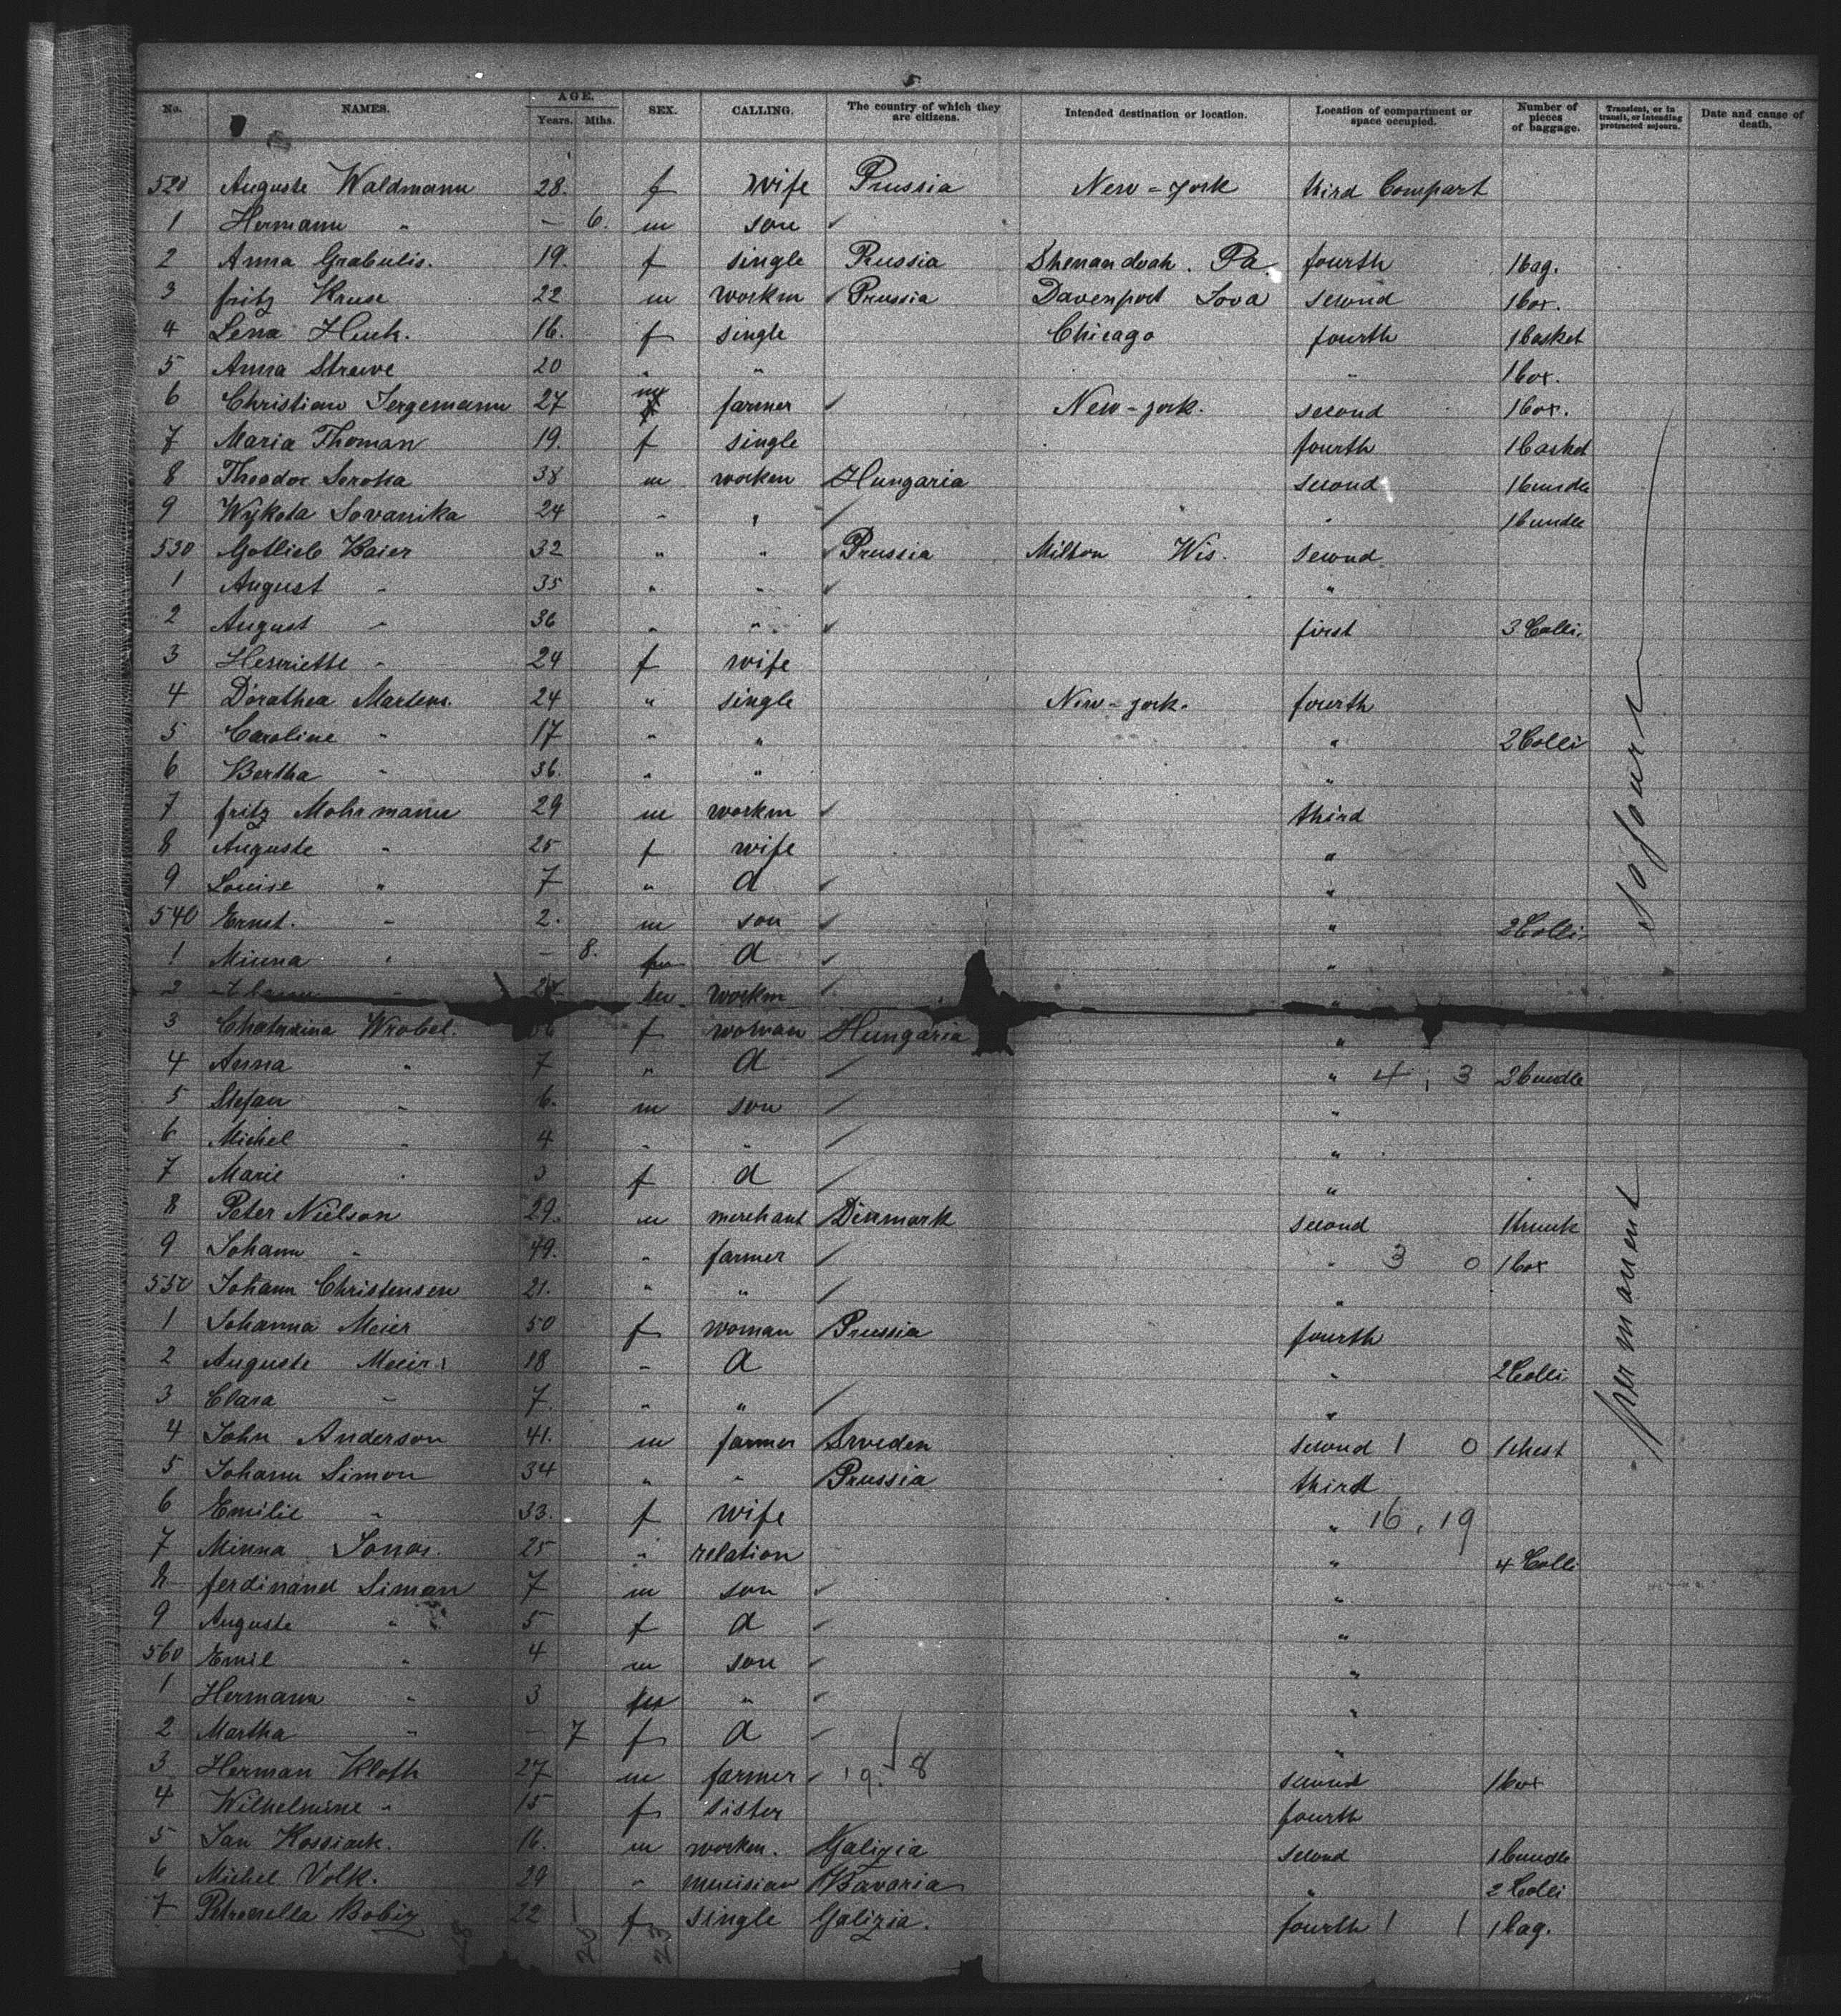 5
No. NAMES. AGE. Years. Mths. SEX. CALLING. The country of which they are citizens. Intended destination or location. Location of compartment or space occupied. Number of pieces of baggage. Transient, or in transit, or intending protracted sojourn. Date and cause of death.
520 Auguste Waldmann 28. f wife Prussia New-york third Compart
1 Hermann " — 6. m son
2 Anna Grabulis. 19. f single Russia Shenandoah. Pa fourth 1 bag.
3 fritz Kruse 22 m workm Prussia Davenport Iova second 1 box.
4 Lena Huch. 16. f single Chicago fourth 1 basket
5 Anna Struve 20 " " " 1 box.
6 Christian Jergemann 27 m farmer New-york. second 1 box.
7 Maria Thoman 19. f single fourth 1 basket
8 Theodor Serotta 38 m workm Hungaria second 1 bundle
9 Wykota Sovanika 24 " " " 1 bundle
530 Gotlieb Baier 32 " " Prussia Milton Wis. second
1 August " 35 " " "
2 August " 36 " " first 3 Colli.
3 Henriette " 24 f wife
4 Dorathea Martens. 24 " single New-york. fourth
5 Caroline " 17 " " " 2 Colli
6 Bertha " 36. " " "
7 fritz Mohrmann 29 m workm third
8 Auguste " 25 f wife "
9 Louise " 7 " d "
540 Ernst. " 2. m son " 2 Colli.
1 Minna " — 8. f d "
2 " m workm "
3 Chatarina Wrobel. f woman Hungaria "
4 Anna " 7 " d " 4, 3 3 bundle
5 Stefan " 6. m son "
6 Michel " 4 " " "
7 Marie " 3 f d "
8 Peter Nielson 29. m merchant Denmark second 1 trunk
9 Johann " 49. " farmer " 3 0 1 box
550 Johann Christensen 21. " " "
1 Johanna Meier 50 f woman Prussia fourth
2 Auguste Meier 18 " d " 2 Colli
3 Clara " 7. " " "
4 John Anderson 41. m farmer Sweden second 1 0 1 chest
5 Johann Simon 34 " " Prussia third
6 Emilie " 33. f wife " 16, 19
7 Minna Jonas. 25 " relation " 4 Colli
8 ferdinand Simon 7 m son "
9 Auguste " 5 f d "
560 Emil " 4 m son "
1 Hermann " 3 m " "
2 Martha " — 7 f d "
3 Herman Kloth 27 m farmer 19. 8 second 1 box
4 Wilhelmine " 15 f sister fourth
5 Jan Kossiack. 16. m workm. Galizia second 1 bundle
6 Michel Volk. 29 " musician Bavaria " 2 Colli
7 Petronella Bobiz 22 f single Galizia. fourth 1 1 1 bag.
23
permanent sojourn